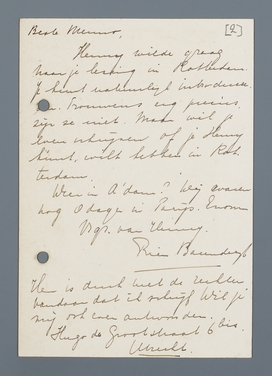 Beste Menno,
[2]
Henny wilde graag
naar je lezing in Rotterdam.
Je kunt natuurlijk introducee-
ren. Trouwens erg precies
zijn ze niet. Maar wil je
even schrijven of je Henny
kunt, wilt hebben in Rot-
terdam.
Weer in A'dam? Wij waren
nog 8 dagen in Parijs. Enorm
Vgr. van Henny.
Rien
Hen is druk met de
vandaar dat ik schrijf. Wil je
mij ook even antwoorden.
Hugo de Grootstraat 6 bis.
Utrecht.